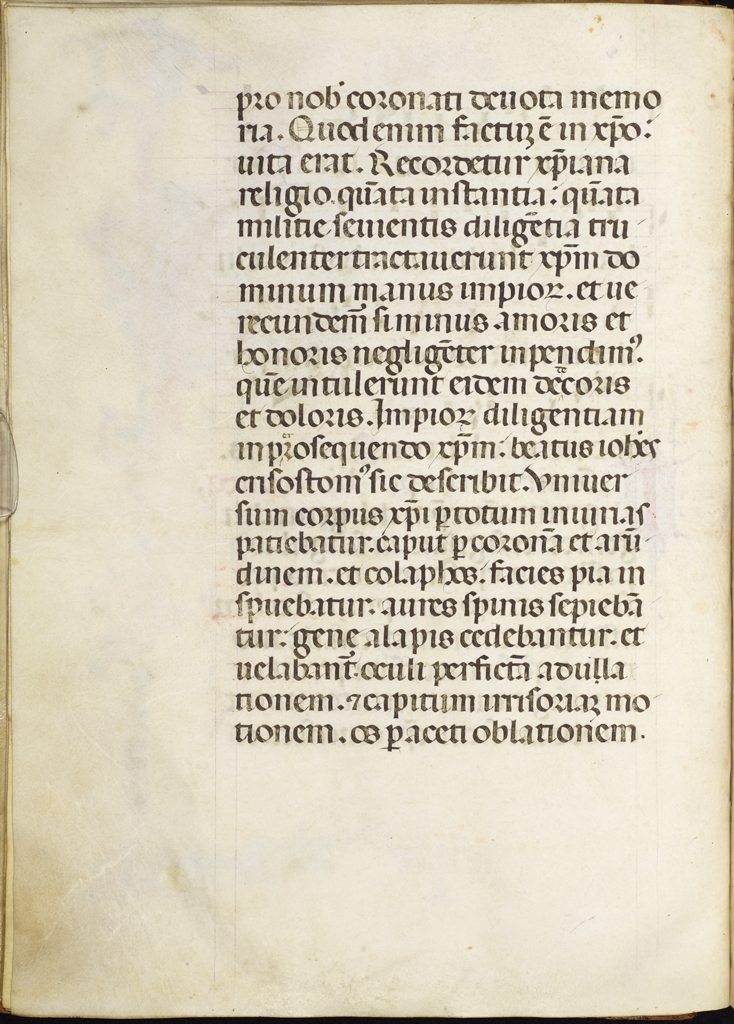 pro nob' coronati deuota memo
ria. Quod enim factuꝫ ē in xp̄o:
uita erat. Recordetur xp̄iana
religio. quāta instantia: quāta
militie seuientis diligētia tru
culenter tractauerunt xp̄m do
minum manus impioꝝ. et ue
recundem̄ si minus amoris et
honoris negligēter inpendim᷒.
quē intulerunt eidem dedecoris
et doloris. Impioꝝ diligentiam
in prosequendo xp̄m: beatus ioħes
crisostom᷒ sic describit. Vniuer
sum corpus xp̄i ꝑ totum iniurias
patiebatur. caput ꝑ coronā et arū
dinem. et colaphos. facies pia in
spuebatur. aures spinis sepiebā
tur. genę alapis cedebantur. et
uelabant̄ oculi perfictā adulla
tionem. ⁊ capitum irrisoriaꝫ mo
tionem. os ꝑ aceti oblationem.